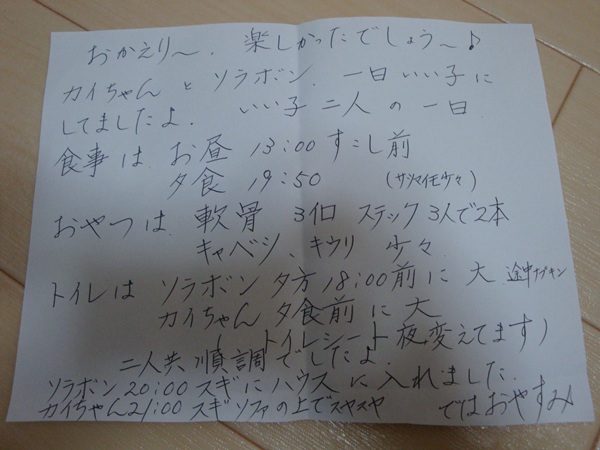 おかえり〜. 楽しかったでしょう〜♪
カイちゃん と ソラボン. 一日 いい子に
してましたよ. いい子 二人 の 一日
食事 は お昼 13:00 すこし前
夕食 19:50 (サツマイモ少々)
おやつは 軟骨 3個 スティック 3人で2本
キャベツ、キウリ 少々
トイレは ソラボン 夕方 18:00前に 大 途中
カイちゃん 夕食前 に 大
(トイレシート 夜、変えてます)
二人共 順調でしたよ
ソラボン 20:00 スギに ハウス に 入れました.
カイちゃん 21:00 スギ ソファの上で スヤスヤ ではおやすみ♪